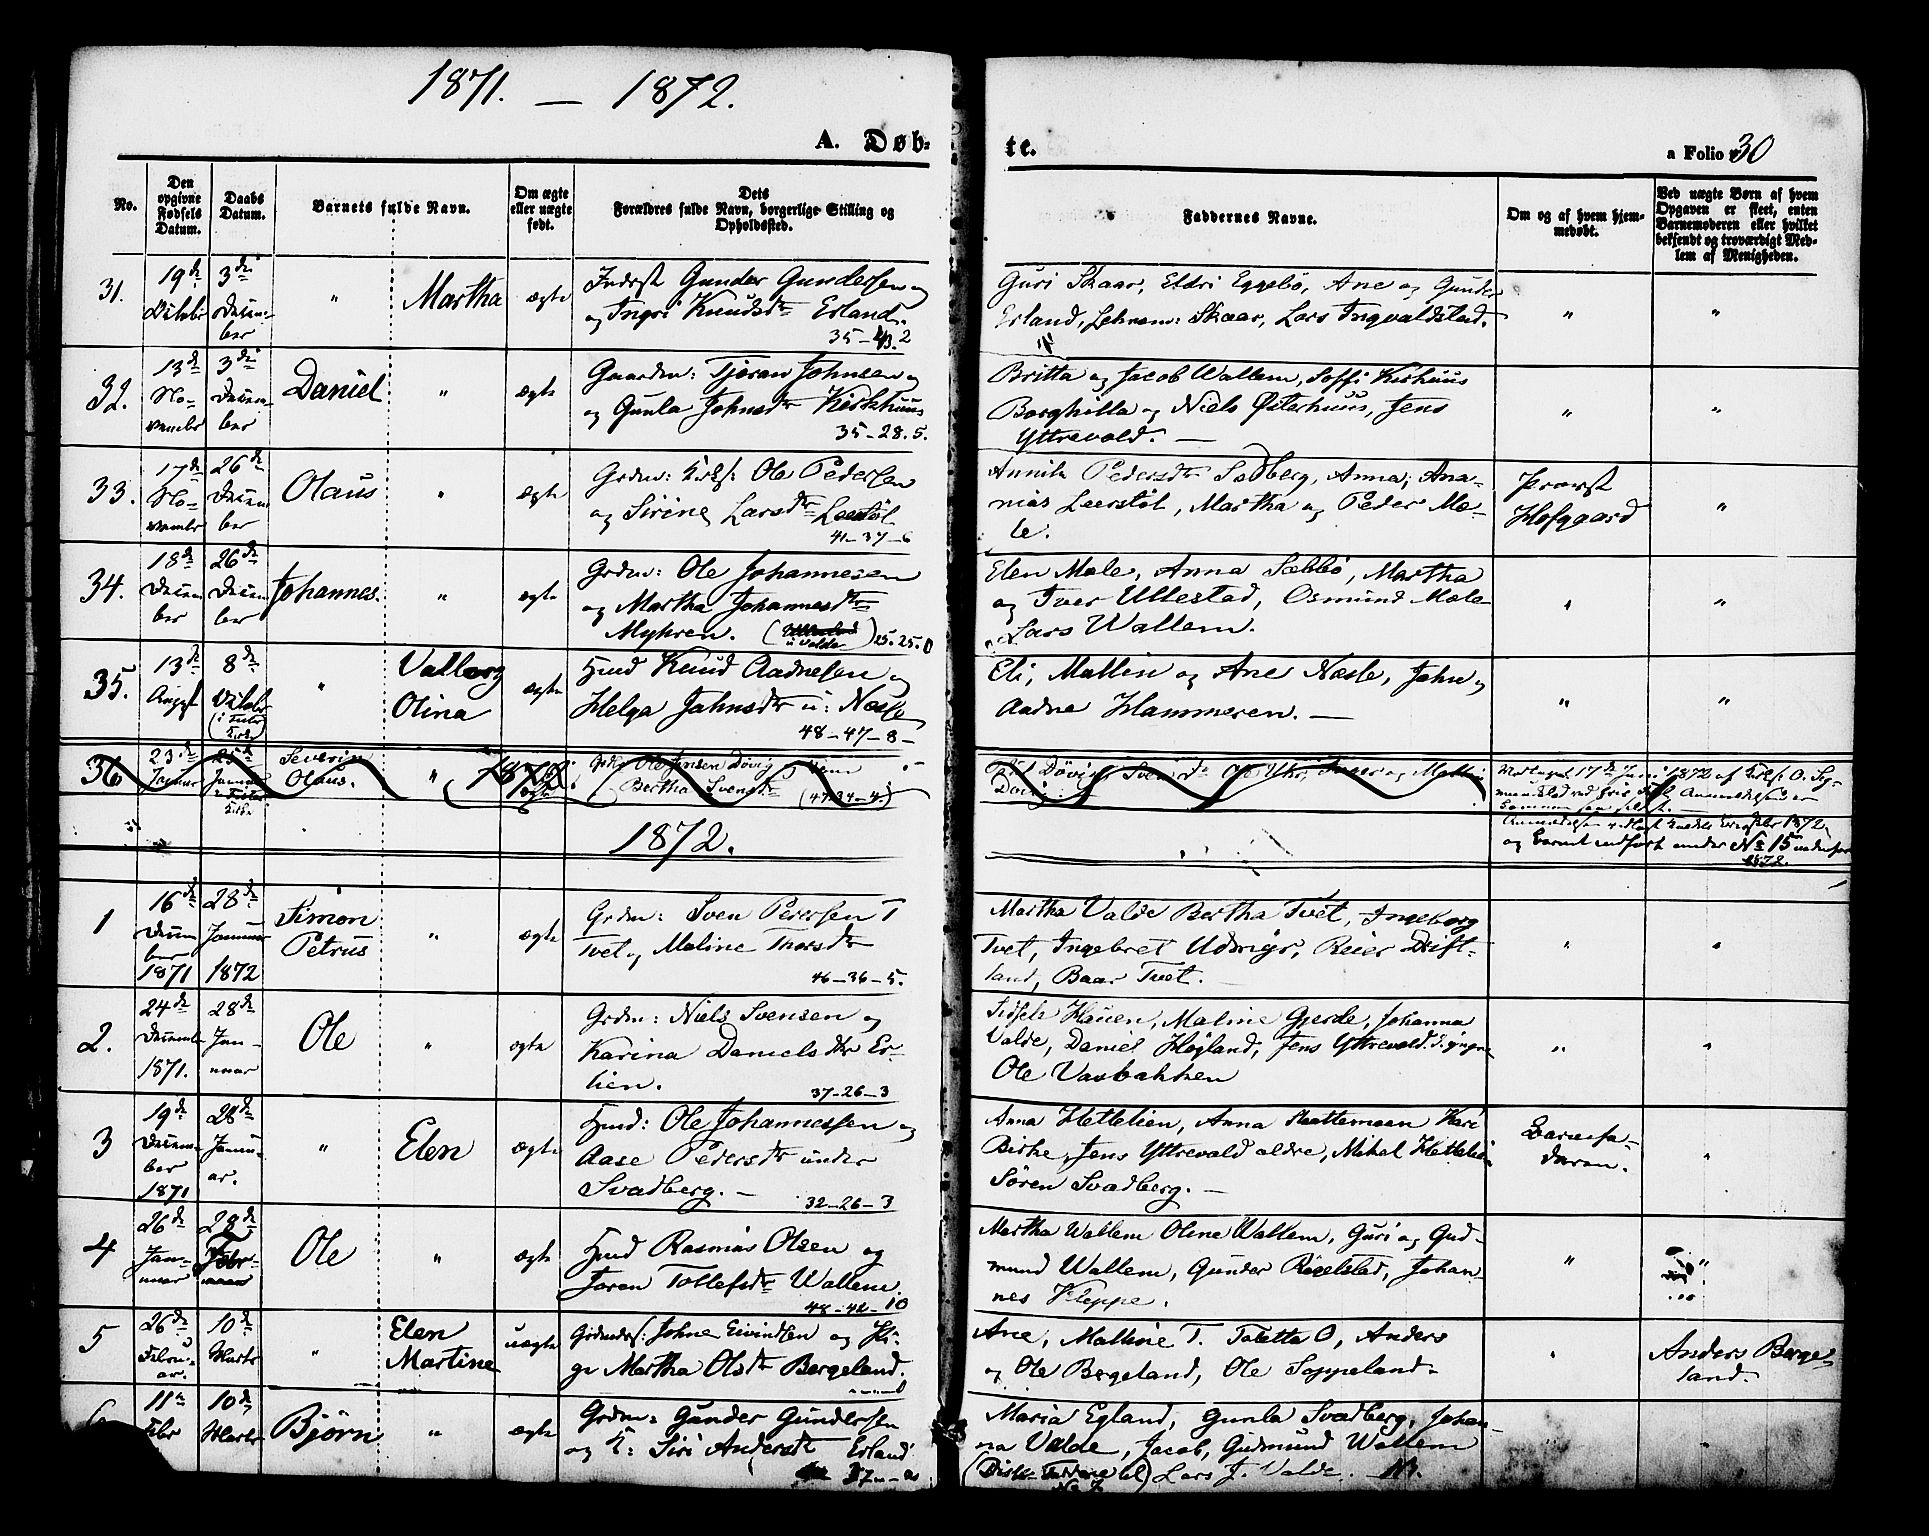 1871. — 1872.
A. Døbte.
a Folio 30
No.
Den opgivne Fødsels Datum.
Daabs Datum.
Barnets fulde Navn.
Om ægte eller uægte født.
Dets Forældres fulde Navn, borgerlige Stilling og Opholdssted.
Faddernes Navne.
Om og af hvem hjemmedøbt.
Ved uægte Børn af hvem Opgaven er skeet, enten Barnemoderen eller hvilket bekjendt og troværdigt Medlem af Menigheden.
31.
19de
3die
Decem-
ber
"
Martha
ægte
Gunder Gundersen
og Ingri Knudsdtr Erland.
35
Guri Skaar, Eldri Eggebø, Ane og Gunder
Erland, Skaar, Lars Ingvaldstad.
"
"
32.
13de
No-
vember
3die
Decem-
ber
Daniel
"
ægte
Gaardm: Tjøran Johnsen og
og Gunla Johnsdtr Kirkhuus
35-28.5.
Britta og Jacob Wallem, Soffi Kirhuus
Borghilla og Niels Østerhuus, Jens
Yttrevold. —
"
"
33.
17de
No-
vember
26de
Decem
ber
Olaus
"
ægte
Grdm: Ole Pedersen
og Sirine Larsdtr Leerstøl
41-37-6
Pedersdtr Sodberg, Anna, Ana-
nias Leerstøl, Martha og Peder Mæ-
le.
Provst
Hofgaard
"
34.
18de
Decem
ber
26de
Decem
ber
Johannes.
"
ægte
Grdm: Ole Johannesen
og Martha Johannesdtr
Myhren.
u Valde
25.25.0
Elen Mæle, Anna Sæbbø, Martha
og Iver Ullestad, Osmund Mæle
Lars Wallem.
"
"
35.
13de
August
8de
Octobr
"
Valborg
Olina
ægte
Hmd Knud Aadnesen og
Helga Jahnsdtr u: Nesle
48-47-8-
Eli, Mallin og Ane Nesle, John og
Aadne Hammeren. —
"
"
36
23de
Januar
25de
Severin
Olaus.
"
1872.
ægte
Ole Jensen Døvig
Bertha Svensdtr
(47.34-4.)
Modtaget 17de Juni 1872 af
og Barnet indført under No 15
1872.
1872.
1
16de
Decem
ber
1871
28de
Januar
1872
Simon
Petrus
"
ægte
Grdm: Sven Pedersen T
Tvet og Maline Thorsdtr
46-36-5.
Martha Valde Bertha Tvet, Ingeborg
Tvet, Ingebret Udmyr, Reier Drift-
land, Baar Tvet.
"
"
2.
24de
Decemb
1871.
28de
Jan-
nuar
Ole
"
ægte
Grdm: Niels Svensen og
Karina Danielsdtr Er-
lien.
37-26-3
Sidsele Hauen, Maline Gjerde, Johanna
Valde, Daniel Højland, Jens Yttrevold
Ole Vasbakken
"
"
3
19de
Decem-
ber
1871
28de
Janu-
ar.
"
Elen
ægte
Hmd: Ole Johannessen og
Aase Pedersdtr under
Svadberg. —
32-26-3
Anna Hettelien, Anna Kari
Birke, Jens Yttrevold ældre, Mikal Hettelien
Søren Svadberg. —
Barnefa-
deren.
"
4
26de
Jan-
nuar
28de
Febr-
Ole
"
ægte
Hmd Rasmus Olsen og
Joren Tollefsdtr Wallem.
48-42-10
Martha Wallem Oline Wallem, Guri og Gud-
mund Wallem, Gunder Røgelstad, Johan-
nes Kleppe.
"
"
5
26de
Febru-
ar.
10de
Marts
"
Elen
Martine
uægte
Johne Eivindsen og Pi-
ge Martha Olsdtr Bergeland.
Ane, Malline T. Tolette O, Anders
og Ole Bergeland, Ole Soppeland.
"
Anders Berge-
land.
6
11te
Febr
10de
Marts
Bjørn
"
ægte
Grdm: Gunder Gundersen
og K: Siri Andersdtr Erland
Maria Egland, Gunla Svadberg, Johan-
na Valde, Jacob, Gudmund Wallem
(Disse Faddere til) Lars J. Valde.
No 7